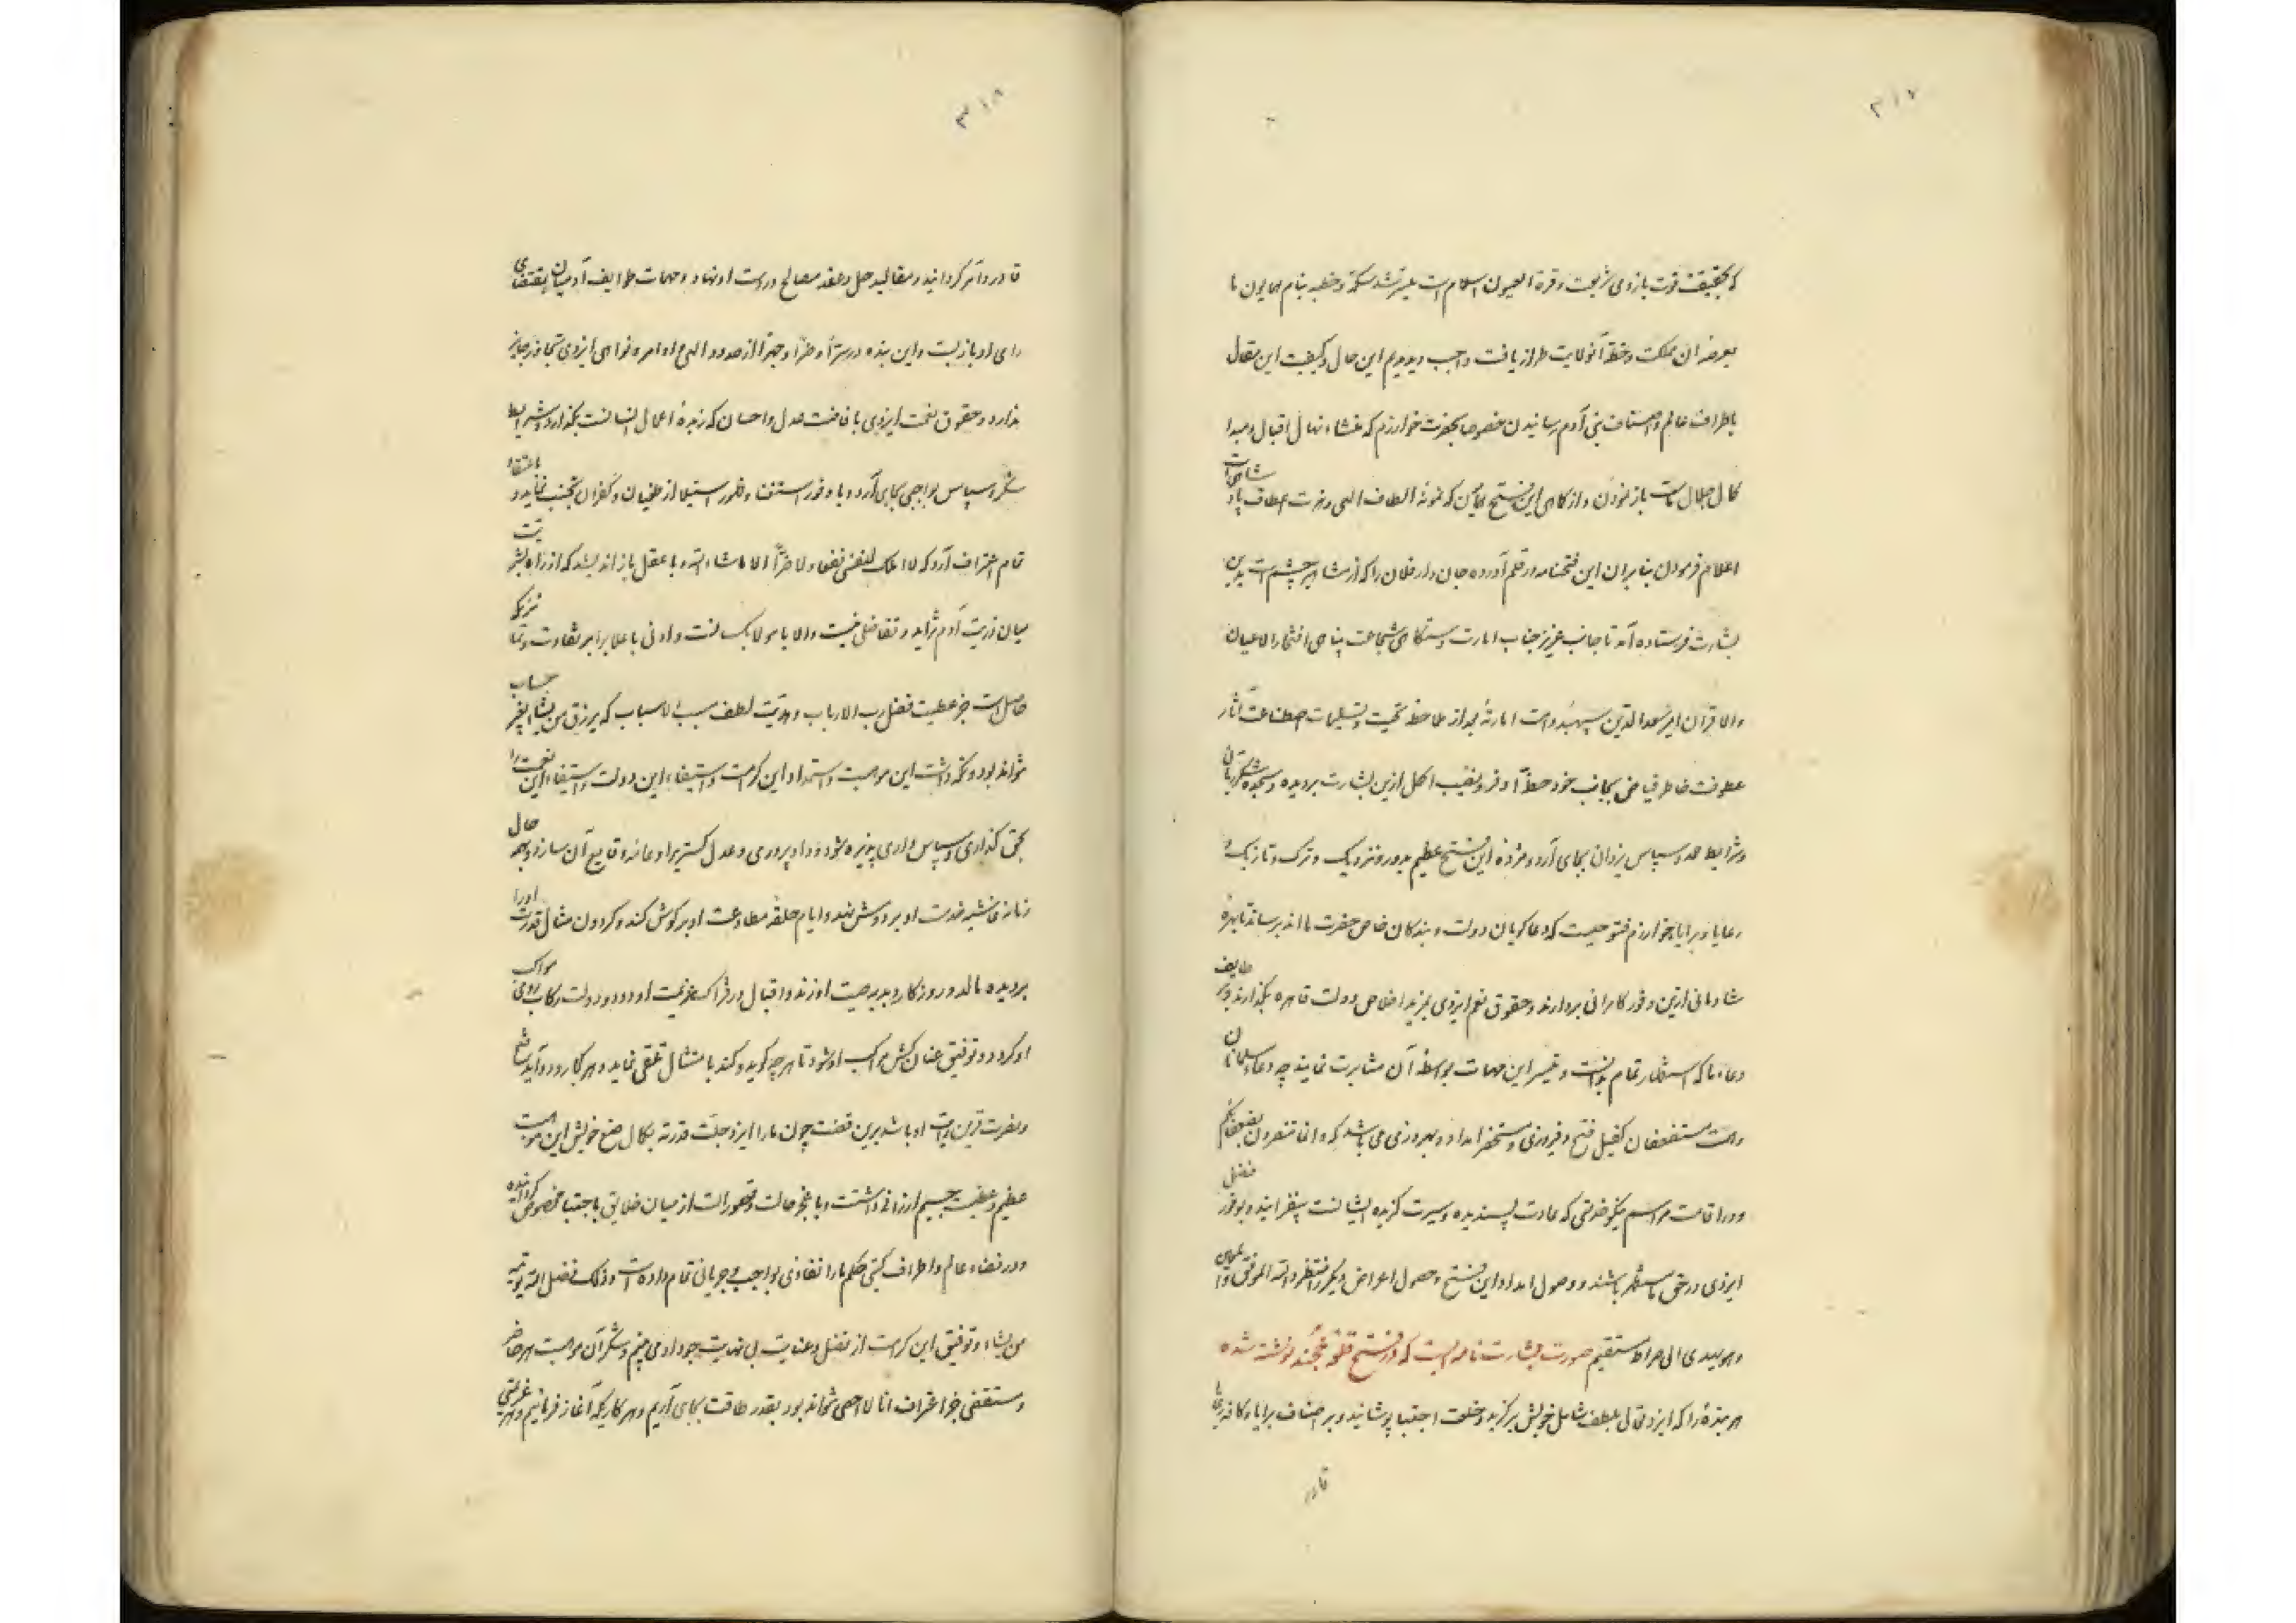 ۳۱۷
که بحقیقت قوت بازوی شریعت و قرة العیون اسلام است میسر شد و سکه و خطبه بنام همایون ما
بعرصه آن مملکت و خطه آن ولایت طراز یافت واجب دیدیم این حال و کیفیت این مقال
باطراف عالم و اصناف بنی آدم رسانیدن خصوصا بحضرت خوارزم که منشاء نهال اقبال و مبدا
کمال جلال ماست باز نمودن و از کماهی این فتح همایون که نمونه الطاف الهی و عطاف پادشاهی است
اعلام فرمودن بنابران این فتحنامه در قلم آورده جان دار فلان را که از مشاهیر حشم است بدین
بشارت فرستاده آمد تا جانب عزیز جناب امارت دستگاهی شجاعت پناهی افتخار الاعیان
والاقران امیر سعد الدین سپهبد دامت امارته بعد از ملاحظه تحیت و تسلیمات اصطناعت آثار
عطوفت خاطر فیاض بجانب خود حظ اوفر و نصیب اکمل ازین بشارت بردیده و سجده شکر ربانی
و شرایط حمد و سپاس یزدانی بجای آرد و مژده این فتح عظیم بدور و نزدیک و ترک و تازیک و
رعایا و برایا خوارزم که دعاگویان دولت و بندگان خاص حضرت مااند برساند تا بهره
شادمانی ازین وفور کامرانی بردارند و حقوق نعم ایزدی بمزید اخلاص دولت قاهره بگذارند و بر وظایف
دعاء ما که استظهار تمام بدانست و تیسیر این مهمات بواسطه آن مثابرت نمایند چه دعاء مسلمانان
و همت مستضعفان کفیل فتح و فیروزی و مستحضر امداد و بهروزی می باشد که و انما تنصرون بضعفائکم
و در اقامت مراسم نیکو خدمتی که عادت پسندیده و سیرت گزیده ایشانست بیفزایند و بوفور فضل
ایزدی در حق ما مستظهر باشند و وصول امداد این فتح و حصول اعراض دیگر را منتظر والله الموفق والمعین
و هو یهدی الی صراط مستقیم صورت بشارت نامه ایست که در فتح قلعه خجند نوشته شده
هر بندهٔ را که ایزد تعالی بلطف شامل خویش برگزید و خلعت اجتبا پوشانید و بر اصناف برایا و کافه رعایا
قادر
۳۱۸
قادر و آمر گردانید و مقالید حل و عقد مصالح در دست او نهاد و مهمات طوایف آدمیان بمقتضای
رای او باز بست و این بنده در سرّا و ضرّا و جهرا از حدود الهی و اوامر و نواهی ایزدی تجاوز جایز
ندارد و حقوق نعمت ایزدی بافاضت عدل و احسان که زبدهٔ اعمال انسانست بگذارد و شرایط
شکر و سپاس بواجبی بجای آرد و با وفور استغنا و ظهور استیلا از طغیان و کفران تجنب نماید و باعتقاد
تمام اعتراف آرد که لا املک لنفسی نفعا و لا ضرّا الا ماشاء الله و با عقل باز اندیشد که از راه بشریت
میان ذریت آدم تزاید و تفاضلی نیست والا با مولا یکسانست و ادنی با اعلا برابر تفاوت و تمیزیکه
حاصل است جز عطیت فضل رب الارباب و هدیت لطف مسبب الاسباب که یرزق من یشاء بغیر حساب
نتواند بود و نگه داشت این موهبت و استمداد این کرامت و استبقاء این دولت و استیفاء این نعمت را
بحق گذاری و سپاس داری پذیره شود و داد پروری و عدل گستری را دعامه وقایع آن سازد و بهمه حال
زمانه غاشیه خدمت او بر دوش نهد و ایام حلقه مطاوعت او بر گوش کند و گردون مثال قدرت او را
بردیده مالد و روزگار دبدبه صیت او زند و اقبال در فتراک عزیمت او دود و دولت رکاب روی مواکب
او گردد و توفیق عنان کش مواکب او شود تا هر چه گوید و کند بامتثال تلقی نماید و هر کجا رود و آید
و نصرت قرین رایت او باشد برین قضیت چون ما را ایزد جلت قدرته بکمال صنع خویش این موهبت
عظیم و عطیت جسیم ارزانی داشت و از میان خلایق باجتبا مخصوص گردانیده
و در فضاء عالم و اطراف گیتی حکم ما را نفاذی بواجب و جریانی تمام داده است و ذلک فضل الله یؤتیه
من یشاء و توفیق این کرامت از فضل و عنایت بی نهایت جود او می بینیم و شکر آن موهبت هر حاضر
و مستقصی جز اعتراف انا لا احصی نتواند بود بقدر طاقت بجای آریم و هر کاریکه آغاز فرمائیم و بهر عزیمتی